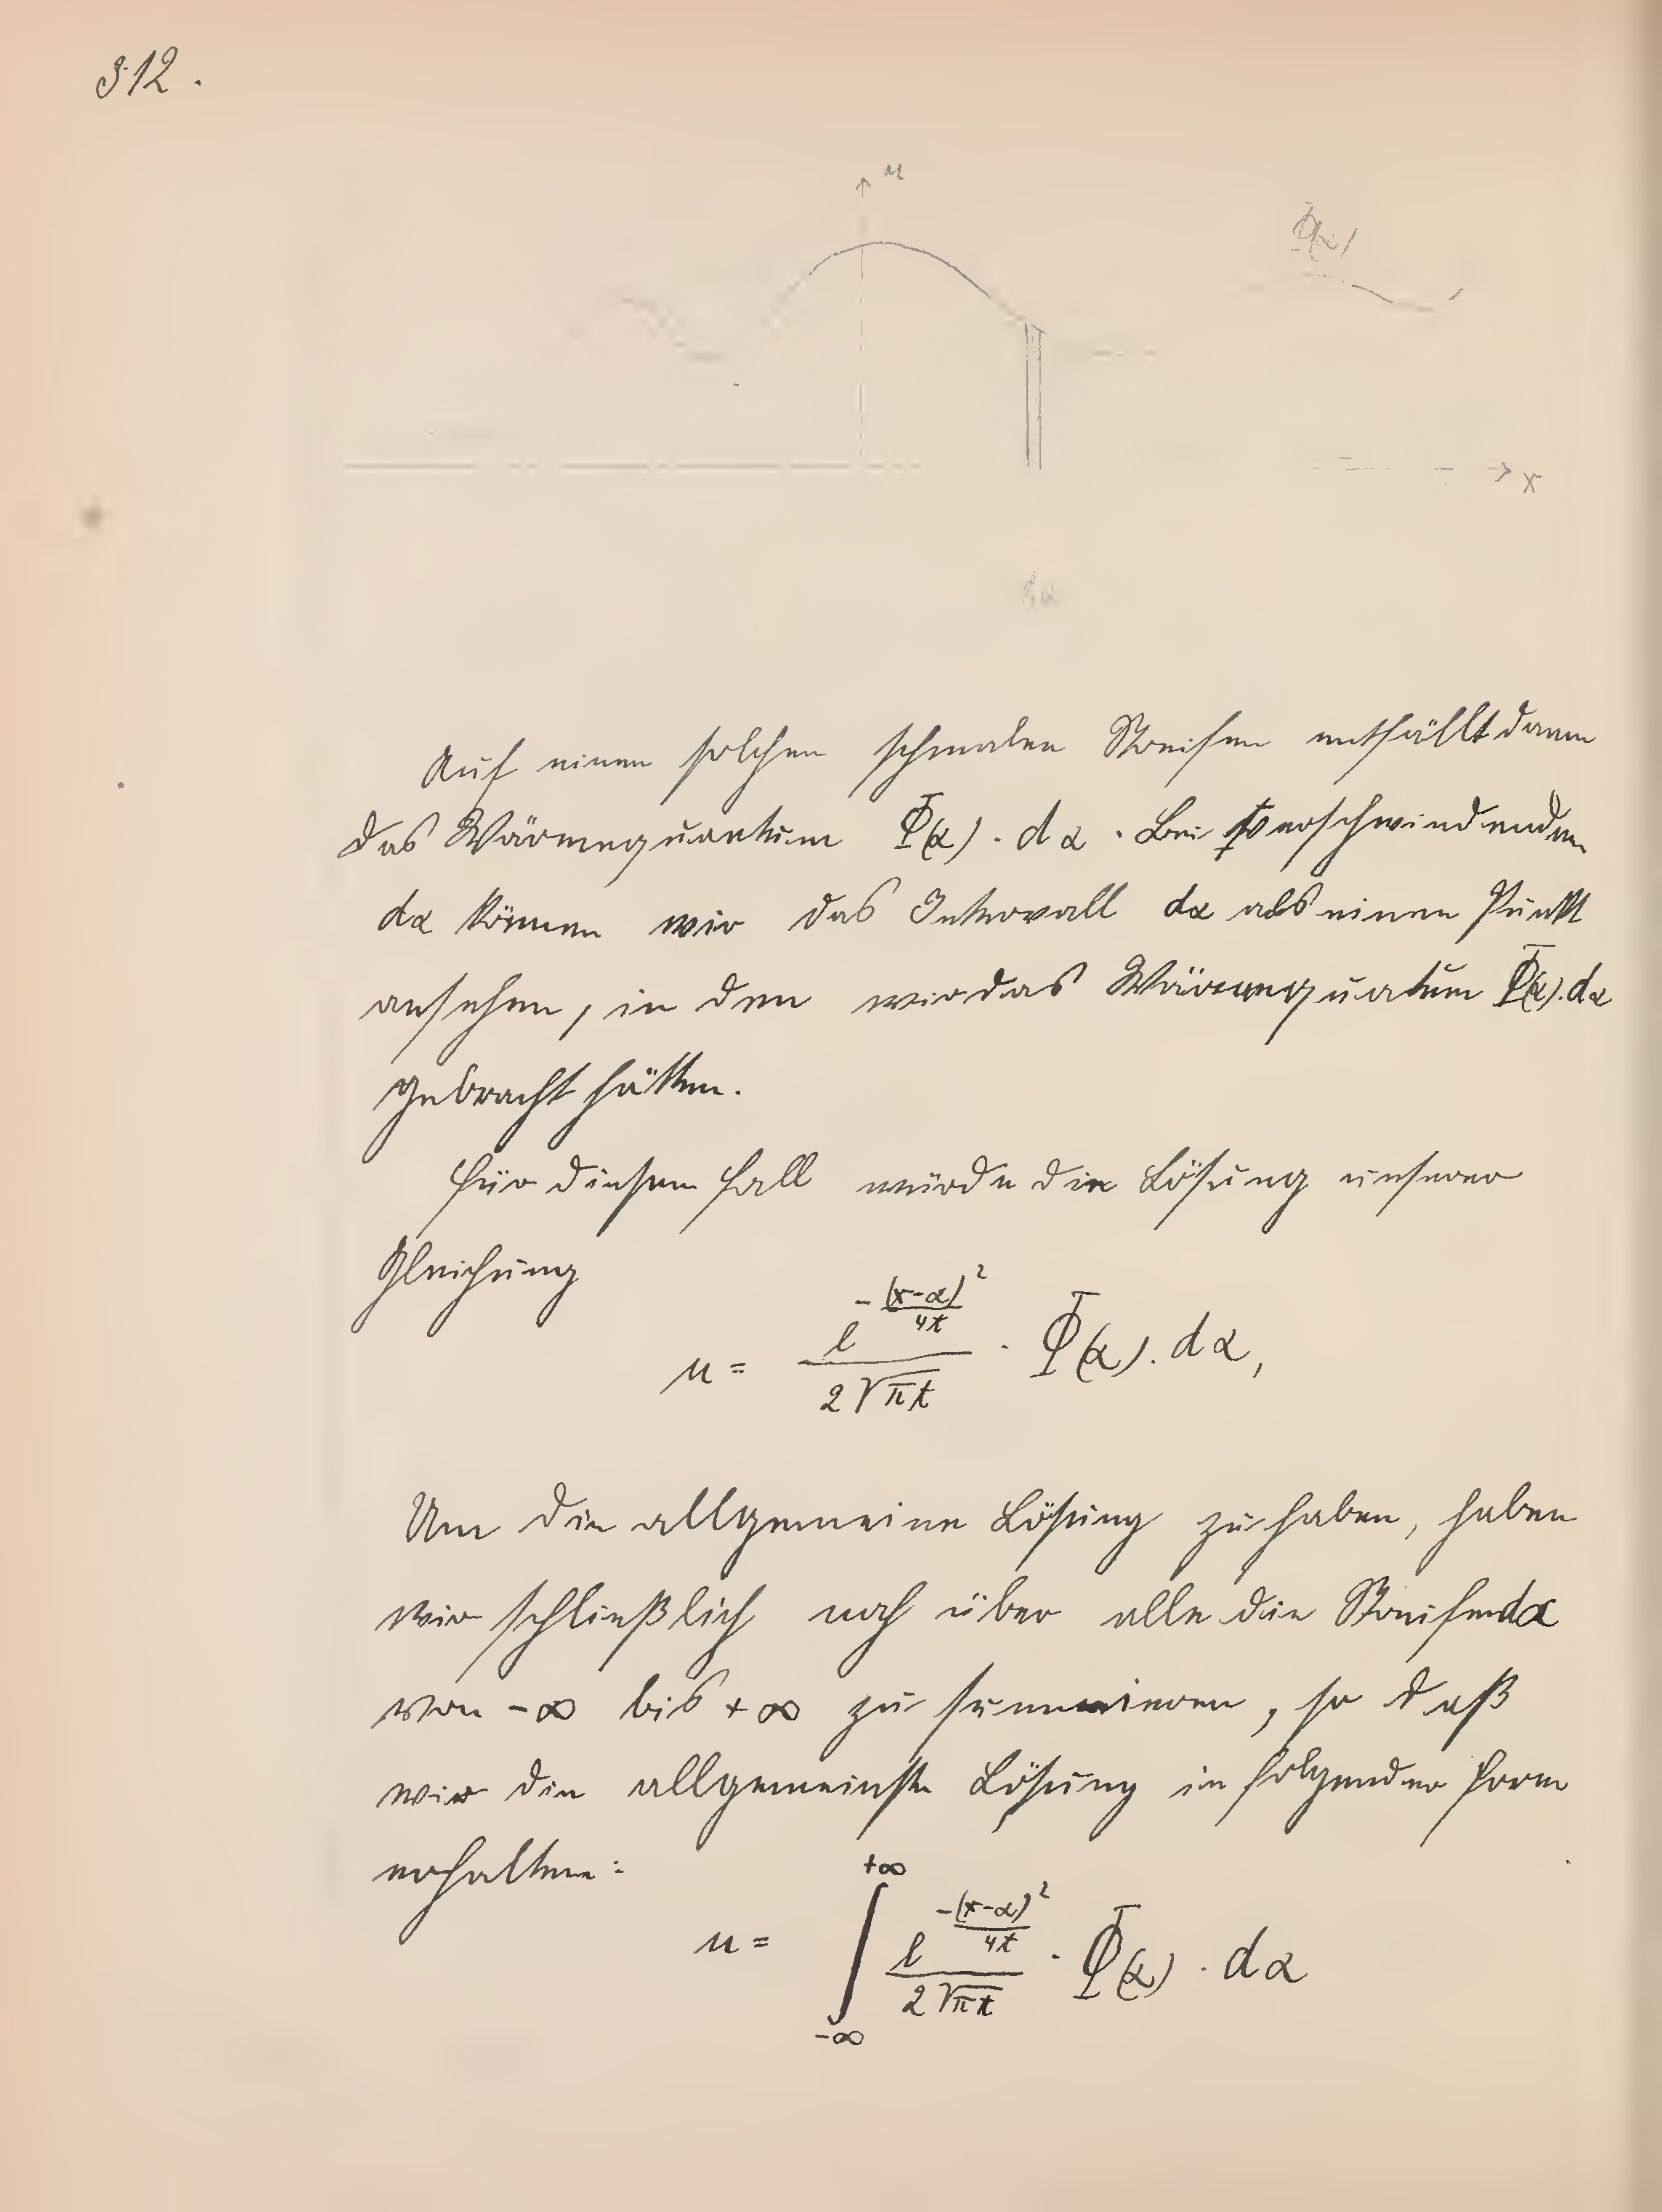 312.
u
Φ(α)
x
dα
Auf einen solchen schmalen Streifen entfällt dann
das Wärmequantum Φ(α) . dα . Bei verschwindendem
dα können wir das Intervall dα als einen Punkt
ansehen, in den wir das Wärmequantum Φ(α).dα
gebracht hätten.
Für diesen Fall würde die Lösung unserer
Gleichung
u = e^{-(x-α)²/4t} / 2√πt . Φ(α) . dα,
Um die allgemeine Lösung zu haben, haben
wir schließlich noch über alle die Streifen dα
von -∞ bis +∞ zu summieren, so daß
wir die allgemeinste Lösung in folgender Form
erhalten:
u = ∫_{-∞}^{+∞} e^{-(x-α)²/4t} / 2√πt . Φ(α) . dα